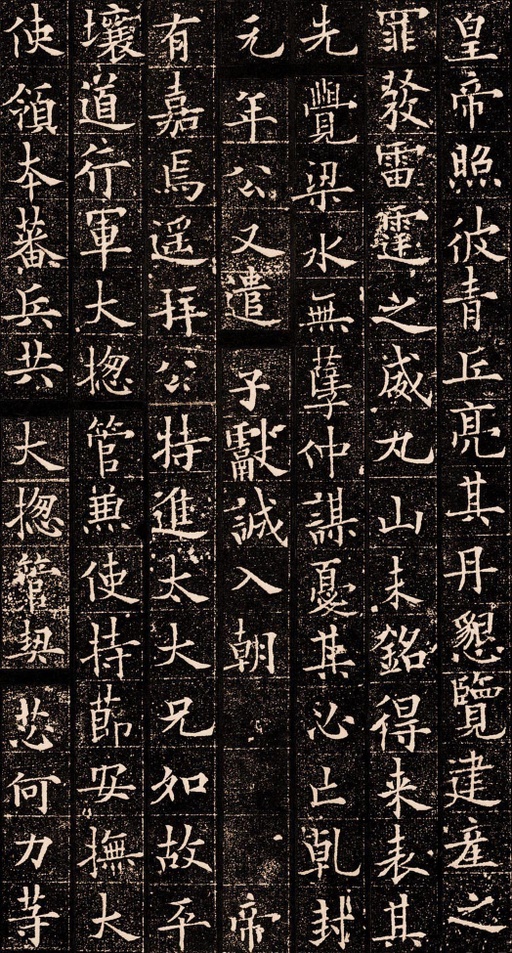 皇帝照彼青丘亮其丹懇覽建産之
罪發雷霆之威丸山未銘得来表其
先覺梁水無孽仲謀憂其必亡乹封
元年公又遣子獻誠入朝 帝
有嘉焉遥拜公特進太大兄如故平
壤道行軍大揔管兼使持莭安撫大
使領夲蕃兵共大揔管契苾何力等